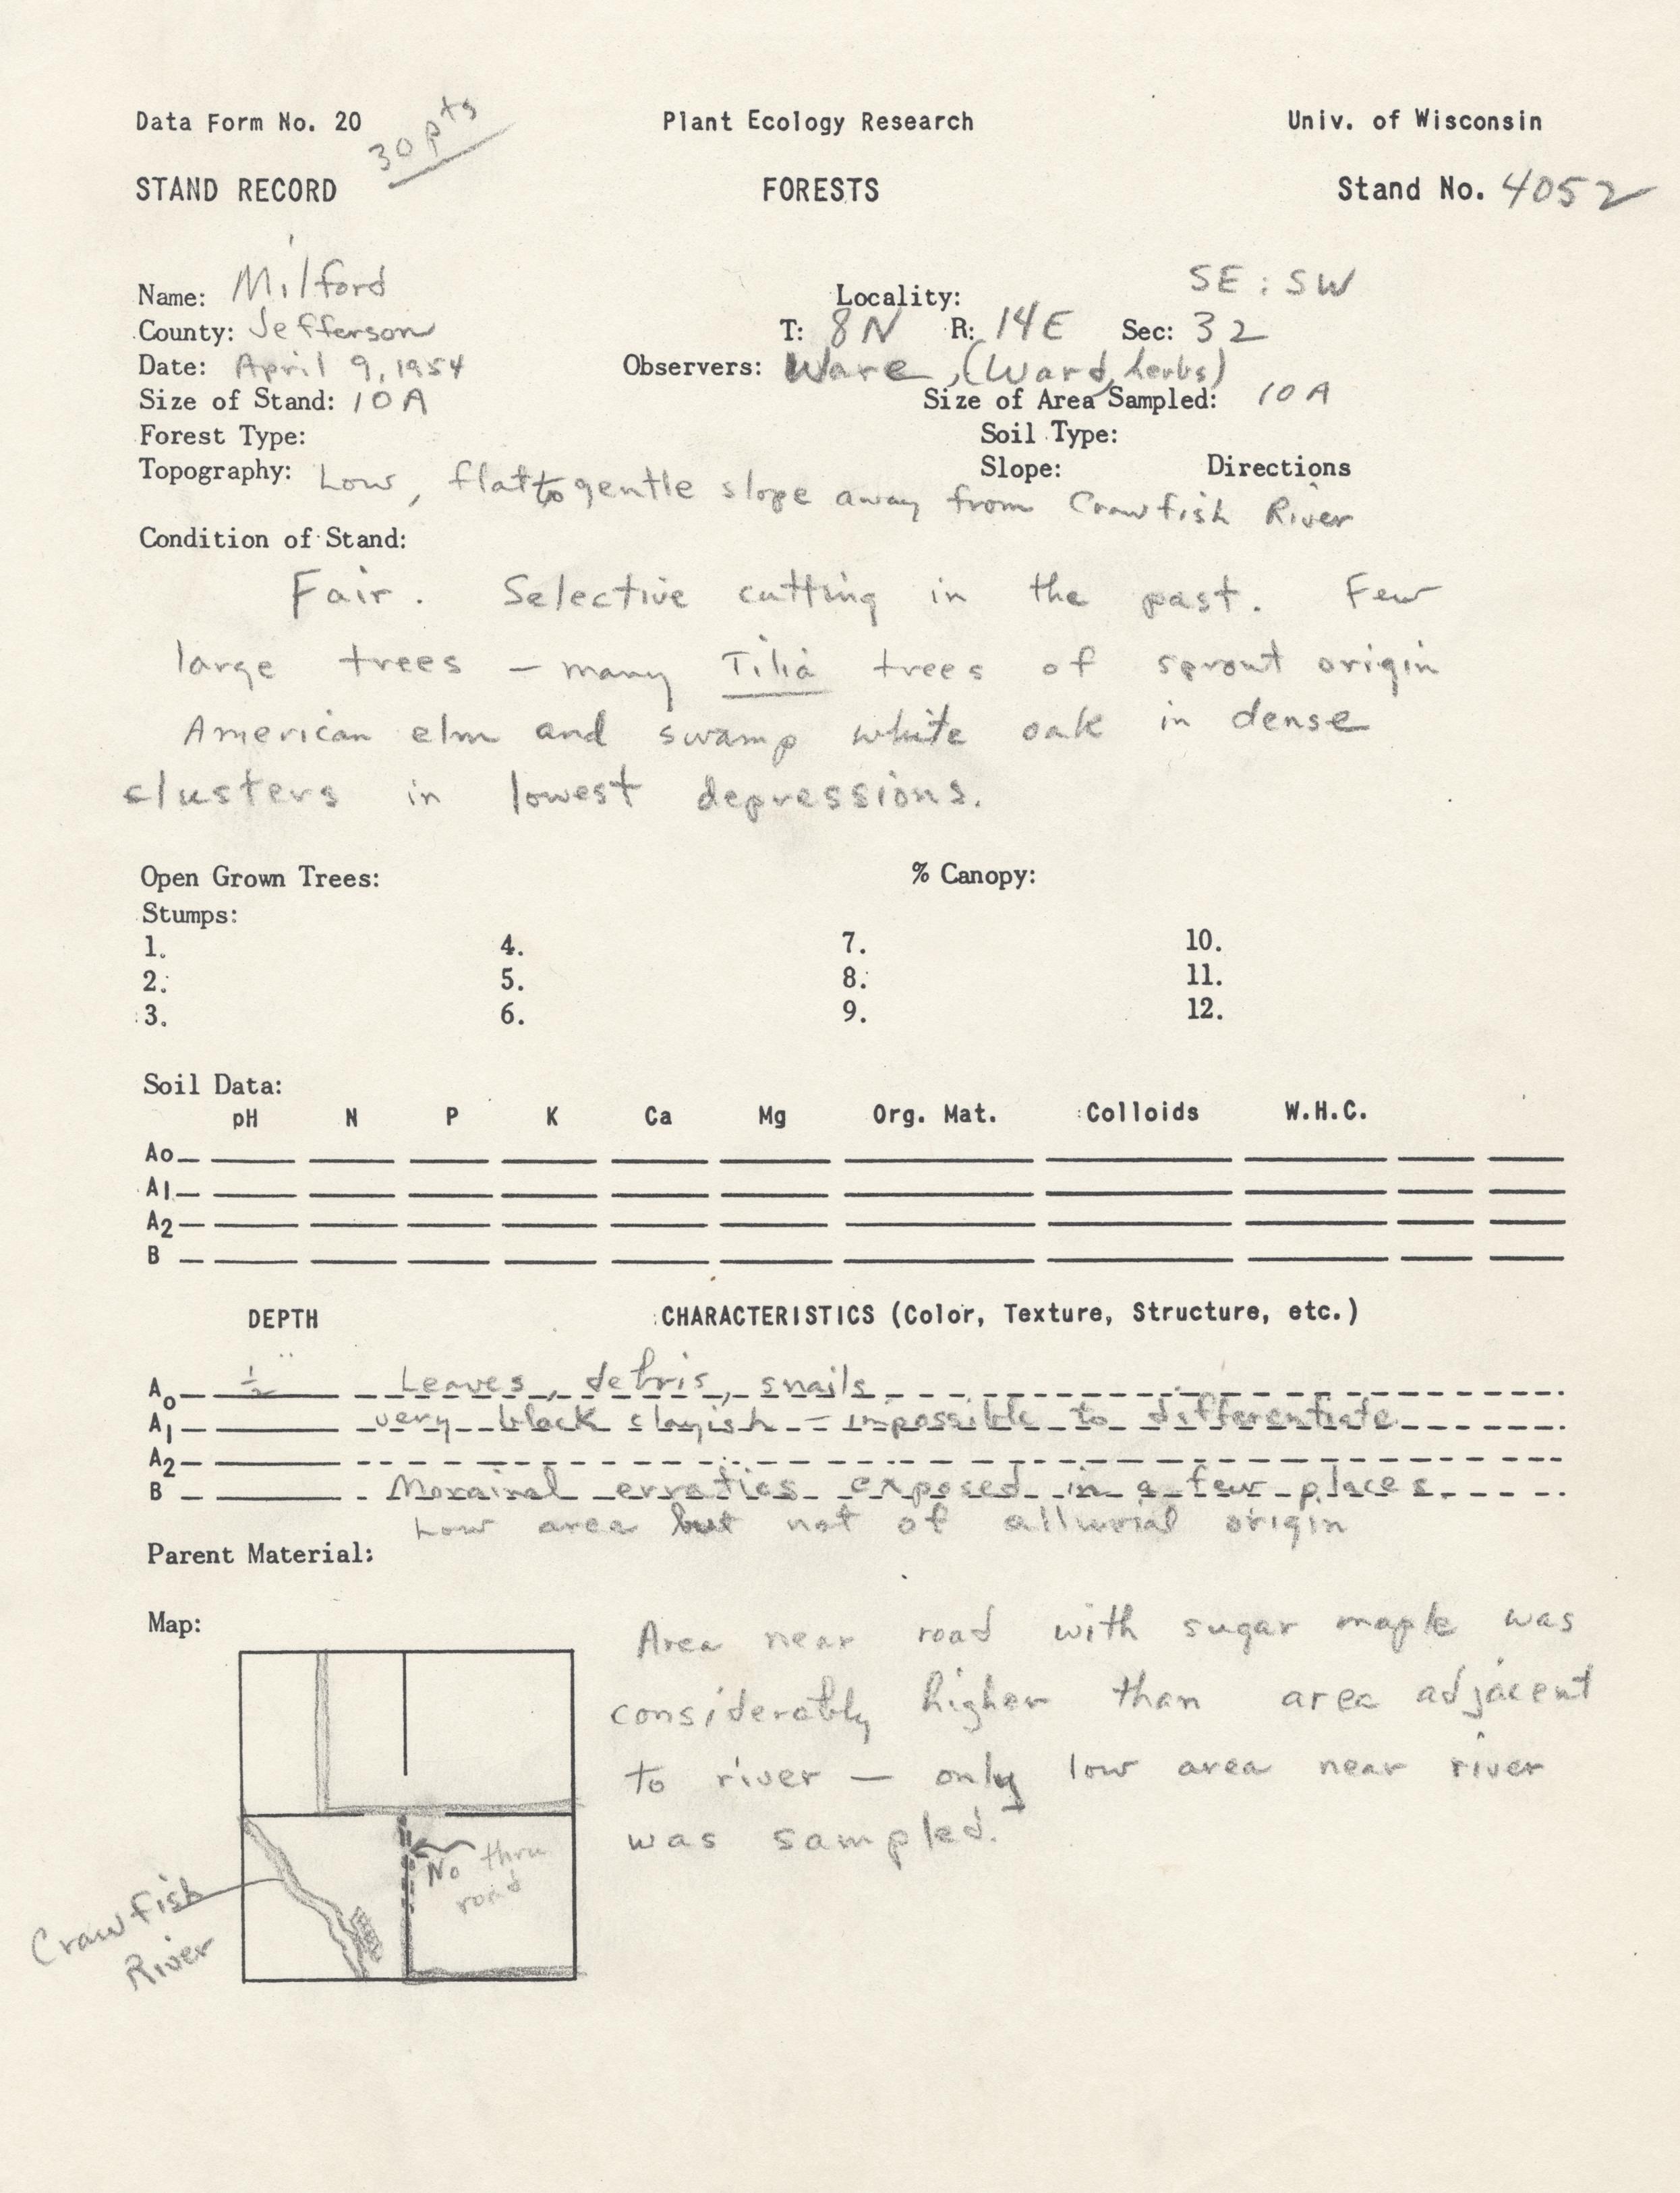 Data Form No. 20 30 pts Plant Ecology Research Univ. of Wisconsin
STAND RECORD FORESTS Stand No. 4052
Name: Milford Locality: SE : SW
County: Jefferson T: 8N R: 14E Sec: 32
Date: April 9, 1954 Observers: Ware, (Ward, herbs)
Size of Stand: 10 A Size of Area Sampled: 10 A
Forest Type: Soil Type:
Topography: Low, flat to gentle slope away from Crawfish River Slope: Directions
Condition of Stand:
Fair. Selective cutting in the past. Few
large trees – many Tilia trees of sprout origin
American elm and swamp white oak in dense
clusters in lowest depressions.
Open Grown Trees: % Canopy:
Stumps:
1. 4. 7. 10.
2. 5. 8. 11.
3. 6. 9. 12.
Soil Data:
pH N P K Ca Mg Org. Mat. Colloids W.H.C.
Ao
A1
A2
B
DEPTH CHARACTERISTICS (Color, Texture, Structure, etc.)
Ao ½" Leaves, debris, snails
A1 very black clayish – impossible to differentiate
A2
B Morainal erratics exposed in a few places.
Low area but not of alluvial origin
Parent Material:
Map:
Area near road with sugar maple was
considerably higher than area adjacent
to river – only low area near river
was sampled.
No thru
road
Crawfish
River